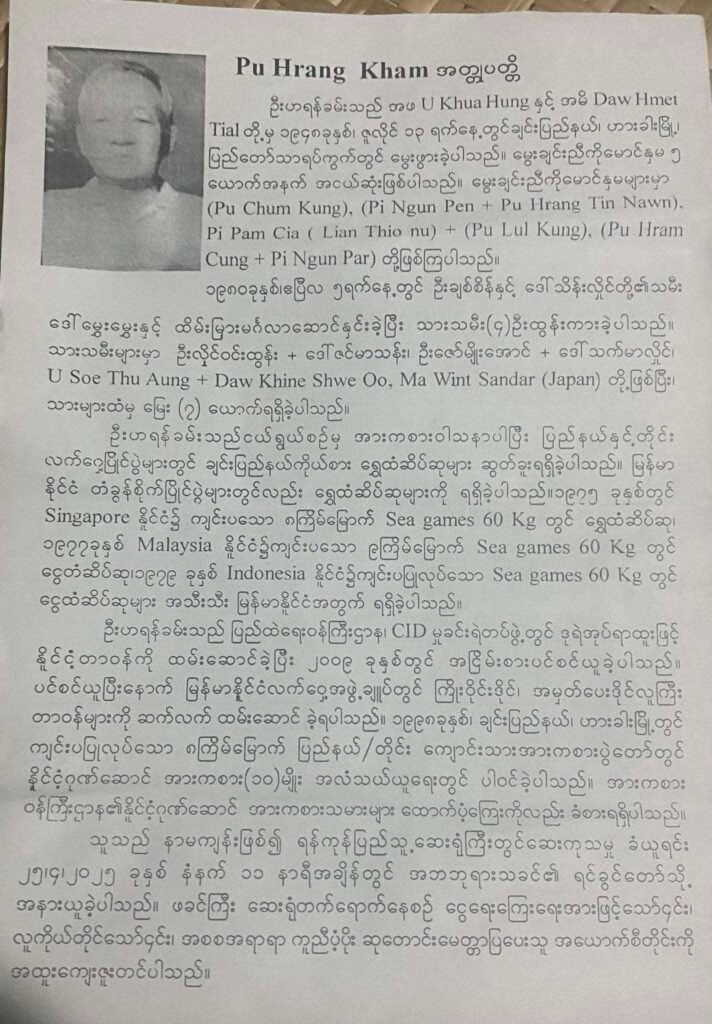 Pu Hrang Kham အတ္ထုပတ္တိ
ဦးဟရန်ခမ်းသည် အဖ U Khua Hung နှင့် အမိ Daw Hmet
Tial တို့မှ ၁၉၄၈ခုနှစ်၊ ဇူလိုင် ၁၃ ရက်နေ့တွင်ချင်းပြည်နယ်၊ ဟားခါးမြို့၊
ပြည်တော်သာရပ်ကွက်တွင် မွေးဖွားခဲ့ပါသည်။ မွေးချင်းညီကိုမောင်နှမ ၅
ယောက်အနက် အငယ်ဆုံးဖြစ်ပါသည်။ မွေးချင်းညီကိုမောင်နှမများမှာ
(Pu Chum Kung), (Pi Ngun Pen + Pu Hrang Tin Nawn),
Pi Pam Cia ( Lian Thio nu) + (Pu Lul Kung), (Pu Hram
Cung + Pi Ngun Par) တို့ဖြစ်ကြပါသည်။
၁၉၈၀ခုနှစ်၊ဧပြီလ ၅ရက်နေ့တွင် ဦးချစ်စိန်နှင့် ဒေါ်သိန်းလှိုင်တို့၏သမီး
ဒေါ်မွှေးမွှေးနှင့် ထိမ်းမြားမင်္ဂလာဆောင်နှင်းခဲ့ပြီး သားသမီး(၄)ဦးထွန်းကားခဲ့ပါသည်။
သားသမီးများမှာ ဦးလှိုင်ဝင်းထွန်း + ဒေါ်ဇင်မာသန်း၊ ဦးဇော်မျိုးအောင် + ဒေါ်သက်မာလှိုင်၊
U Soe Thu Aung + Daw Khine Shwe Oo, Ma Wint Sandar (Japan) တို့ဖြစ်ပြီး၊
သားများထံမှ မြေး (၇) ယောက်ရရှိခဲ့ပါသည်။
ဦးဟရန်ခမ်းသည်ငယ်ရွယ်စဉ်မှ အားကစားဝါသနာပါပြီး ပြည်နယ်နှင့်တိုင်း
လက်ဝှေ့ပြိုင်ပွဲများတွင် ချင်းပြည်နယ်ကိုယ်စား ရွှေတံဆိပ်ဆုများ ဆွတ်ခူးရရှိခဲ့ပါသည်။ မြန်မာ
နိုင်ငံ တံခွန်စိုက်ပြိုင်ပွဲများတွင်လည်း ရွှေထံဆိပ်ဆုများကို ရရှိခဲ့ပါသည်။၁၉၇၅ ခုနှစ်တွင်
Singapore နိုင်ငံ၌ ကျင်းပသော ၈ကြိမ်မြောက် Sea games 60 Kg တွင် ရွှေထံဆိပ်ဆု၊
၁၉၇၇ခုနှစ် Malaysia နိုင်ငံ၌ကျင်းပသော ၉ကြိမ်မြောက် Sea games 60 Kg တွင်
ငွေတံဆိပ်ဆု၊၁၉၇၉ ခုနှစ် Indonesia နိုင်ငံ၌ကျင်းပပြုလုပ်သော Sea games 60 Kg တွင်
ငွေထံဆိပ်ဆုများ အသီးသီး မြန်မာနိုင်ငံအတွက် ရရှိခဲ့ပါသည်။
ဦးဟရန်ခမ်းသည် ပြည်ထဲရေးဝန်ကြီးဌာန၊ CID မှုခင်းရဲတပ်ဖွဲ့တွင် ဒုရဲအုပ်ရာထူးဖြင့်
နိုင်ငံ့တာဝန်ကို ထမ်းဆောင်ခဲ့ပြီး ၂၀၀၉ ခုနှစ်တွင် အငြိမ်းစားပင်စင်ယူခဲ့ပါသည်။
ပင်စင်ယူပြီးနောက် မြန်မာနိုင်ငံလက်ဝှေ့အဖွဲ့ချုပ်တွင် ကြိုးဝိုင်းဒိုင်၊ အမှတ်ပေးဒိုင်လူကြီး
တာဝန်များကို ဆက်လက် ထမ်းဆောင် ခဲ့ရပါသည်။ ၁၉၉၈ခုနှစ်၊ ချင်းပြည်နယ်၊ ဟားခါးမြို့တွင်
ကျင်းပပြုလုပ်သော ၈ကြိမ်မြောက် ပြည်နယ်/တိုင်း ကျောင်းသားအားကစားပွဲတော်တွင်
နိုင်ငံ့ဂုဏ်ဆောင် အားကစား(၁၀)မျိုး အလံသယ်ယူရေးတွင် ပါဝင်ခဲ့ပါသည်။ အားကစား
ဝန်ကြီးဌာန၏နိုင်ငံ့ဂုဏ်ဆောင် အားကစားသမားများ ထောက်ပံ့ကြေးကိုလည်း ခံစားရရှိပါသည်။
သူသည် နာမကျန်းဖြစ်၍ ရန်ကုန်ပြည်သူ့ဆေးရုံကြီးတွင်ဆေးကုသမှု ခံယူရင်း
၂၅၊၄၊၂၀၂၅ ခုနှစ် နံနက် ၁၁ နာရီအချိန်တွင် အဘဘုရားသခင်၏ ရင်ခွင်တော်သို့
အနားယူခဲ့ပါသည်။ ဖခင်ကြီး ဆေးရုံတက်ရောက်နေစဉ် ငွေရေးကြေးရေးအားဖြင့်သော်၎င်း၊
လူကိုယ်တိုင်သော်၎င်း၊ အစစအရာရာ ကူညီပံ့ပိုး ဆုတောင်းမေတ္တာပြပေးသူ အယောက်စီတိုင်းကို
အထူးကျေးဇူးတင်ပါသည်။